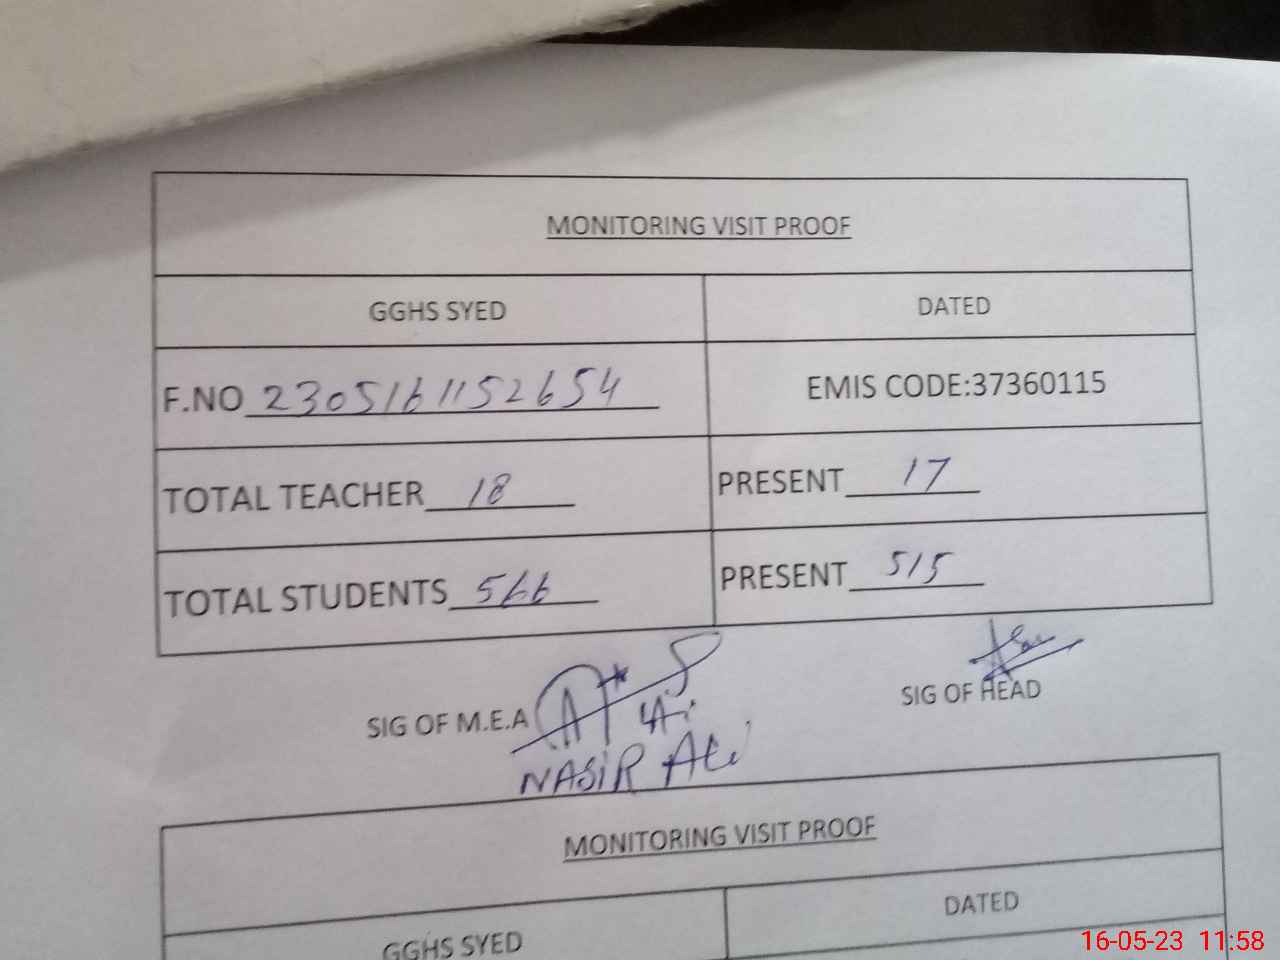 MONITORING VISIT PROOF
GGHS SYED DATED
F.NO 2305161152654 EMIS CODE:37360115
TOTAL TEACHER 18 PRESENT 17
TOTAL STUDENTS 566 PRESENT 515
SIG OF M.E.A SIG OF HEAD
NASIR ALi
MONITORING VISIT PROOF
GGHS SYED DATED
16-05-23 11:58